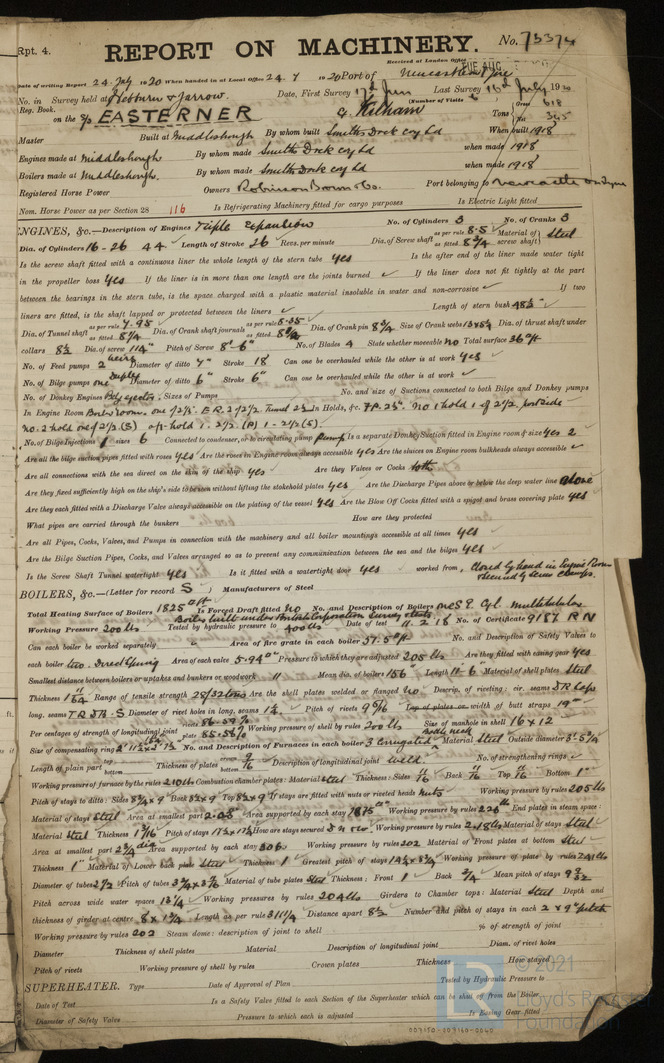 Rpt. 4.
REPORT ON MACHINERY. No. 75374
Received at London Office TUE. AUG.
Date of writing Report 24 July 1920 When handed in at Local Office 24. 7 1920 Port of Newcastle on Tyne
No. in Survey held at Hebburn & Jarrow. Date, First Survey 17th Jan Last Survey 16th July 1920
Reg. Book. (Number of Visits
on the S/S EASTERNER Kilham Tons Gross 618
Net 345
Master Built at Middlesbrough By whom built Smiths Dock Coy Ld When built 1918
Engines made at Middlesbrough By whom made Smiths Dock Coy Ld when made 1918
Boilers made at Middlesbrough. By whom made Smiths Dock Coy Ld when made 1918
Registered Horse Power Owners Robinson Brown & Co. Port belonging to Newcastle on Tyne
Nom. Horse Power as per Section 28 116 Is Refrigerating Machinery fitted for cargo purposes Is Electric Light fitted
ENGINES, &c.—Description of Engines Triple Expansion No. of Cylinders 3 No. of Cranks 3
Dia. of Cylinders 16 - 26 44 Length of Stroke 26 Revs. per minute Dia. of Screw shaft as per rule 8.5 as fitted 8 3/4 Material of screw shaft Steel
Is the screw shaft fitted with a continuous liner the whole length of the stern tube yes Is the after end of the liner made water tight
in the propeller boss yes If the liner is in more than one length are the joints burned If the liner does not fit tightly at the part
between the bearings in the stern tube, is the space charged with a plastic material insoluble in water and non-corrosive If two
liners are fitted, is the shaft lapped or protected between the liners Length of stern bush 48 1/2"
Dia. of Tunnel shaft as per rule 7.95 as fitted 8 1/4 Dia. of Crank shaft journals as per rule 8.35 as fitted 8 3/4 Dia. of Crank pin 8 3/4 Size of Crank webs Dia. of thrust shaft under
collars 8 1/2 Dia. of screw 11'4" Pitch of Screw 8'-6" No. of Blades 4 State whether moveable no Total surface 36 ft
No. of Feed pumps 2 Weirs Diameter of ditto 7" Stroke 18 Can one be overhauled while the other is at work yes
No. of Bilge pumps one Duplex Diameter of ditto 6" Stroke 6" Can one be overhauled while the other is at work
No. of Donkey Engines Sizes of Pumps No. and size of Suctions connected to both Bilge and Donkey pumps
In Engine Room Boiler room. one of 2 1/2. E.R. 2 / 2 1/2 Tunnel 2 1/2 In Holds, &c. F.P. 2 1/2". No 1 hold 1 of 2 1/2 port side
no. 2 hold one of 2 1/2 (S) aft hold 1. 2 1/2 (P) 1 - 2 1/2 (S).
No. of Bilge Injections 1 sizes 6 Connected to condenser, or to circulating pump pump Is a separate Donkey Suction fitted in Engine room & size yes 2
Are all the bilge suction pipes fitted with roses yes Are the roses in Engine room always accessible yes Are the sluices on Engine room bulkheads always accessible
Are all connections with the sea direct on the skin of the ship yes Are they Valves or Cocks both
Are they fixed sufficiently high on the ship's side to be seen without lifting the stokehold plates yes Are the Discharge Pipes above or below the deep water line above
Are they each fitted with a Discharge Valve always accessible on the plating of the vessel yes Are the Blow Off Cocks fitted with a spigot and brass covering plate yes
What pipes are carried through the bunkers How are they protected
Are all Pipes, Cocks, Valves, and Pumps in connection with the machinery and all boiler mountings accessible at all times yes
Are the Bilge Suction Pipes, Cocks, and Valves arranged so as to prevent any communication between the sea and the bilges yes
Is the Screw Shaft Tunnel watertight yes Is it fitted with a watertight door yes worked from closed by hand in Engine Room
BOILERS, &c.—(Letter for record S) Manufacturers of Steel
Total Heating Surface of Boilers 1825 ft Is Forced Draft fitted no No. and Description of Boilers one S.E. Cyl. multitubular
Boiler built under British Corporation Survey
Working Pressure 200 lbs Tested by hydraulic pressure to 400 lbs Date of test 11.2.18 No. of Certificate 9187 RN
Can each boiler be worked separately Area of fire grate in each boiler 37.5 ft No. and Description of Safety Valves to
each boiler two. Direct Spring Area of each valve 5.94" Pressure to which they are adjusted 205 lbs Are they fitted with easing gear yes
Smallest distance between boilers or uptakes and bunkers or woodwork Mean dia. of boilers 156 Length 11-6" Material of shell plates Steel
Thickness Range of tensile strength 28/32 tons Are the shell plates welded or flanged no Descrip. of riveting: cir. seams D R Laps
long. seams T.R.D.B.S Diameter of rivet holes in long. seams 1 1/4 Pitch of rivets 9 1/16 Lap of plates or width of butt straps 19"
Per centages of strength of longitudinal joint rivets plate 85.58% Working pressure of shell by rules 200 lbs Size of manhole in shell 16 x 12
Size of compensating ring No. and Description of Furnaces in each boiler 3 Corrugated Material Steel Outside diameter 3'-5 3/4
Length of plain part top bottom Thickness of plates crown bottom Description of longitudinal joint Weld No. of strengthening rings
Working pressure of furnace by the rules 210 lbs Combustion chamber plates: Material Steel Thickness: Sides Back Top Bottom 1"
Pitch of stays to ditto: Sides 8 3/4 x 9 Back Top If stays are fitted with nuts or riveted heads nuts Working pressure by rules 205 lbs
Material of stays Steel Area at smallest part 2.03" Area supported by each stay Working pressure by rules End plates in steam space:
Material Steel Thickness Pitch of stays How are stays secured D N & W Working pressure by rules Material of stays Steel
Area at smallest part Area supported by each stay 306 Working pressure by rules 202 Material of Front plates at bottom Steel
Thickness 1" Material of Lower back plate Steel Thickness 1 Greatest pitch of stays Working pressure of plate by rules
Diameter of tubes 2 1/2 Pitch of tubes Material of tube plates Steel Thickness: Front 1 Back 3/4 Mean pitch of stays
Pitch across wide water spaces 13 1/4 Working pressures by rules 204 lbs Girders to Chamber tops: Material Steel Depth and
thickness of girder at centre 8 x 1 3/4 Length as per rule 31 1/4 Distance apart 8 1/2 Number and pitch of stays in each 2 x 9" pitch
Working pressure by rules 202 Steam dome: description of joint to shell % of strength of joint
Diameter Thickness of shell plates Material Description of longitudinal joint Diam. of rivet holes
Pitch of rivets Working pressure of shell by rules Crown plates Thickness How stayed
SUPERHEATER. Type Date of Approval of Plan Tested by Hydraulic Pressure to
Date of Test Is a Safety Valve fitted to each Section of the Superheater which can be shut off from the Boiler
Diameter of Safety Valve Pressure to which each is adjusted Is Easing Gear fitted
© 2021
Lloyd's Register
Foundation